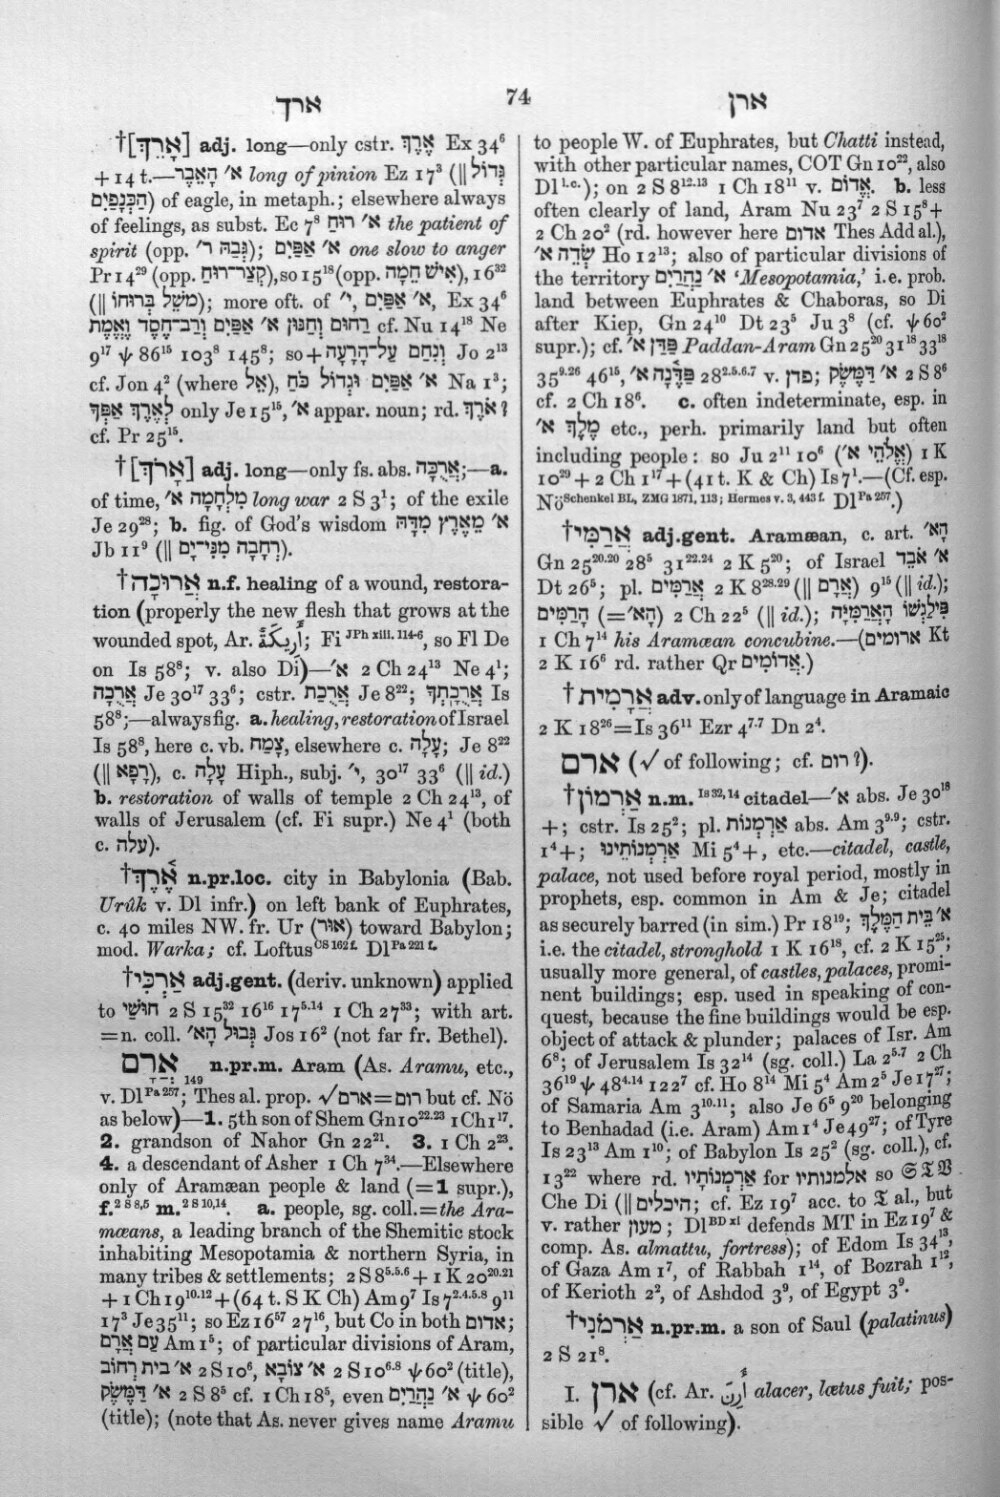 ארך
74
ארן
†[אָרֵךְ] adj. long—only cstr. אֶרֶךְ Ex 34⁶
+ 14 t.—א׳ הָאֵבֶר long of pinion Ez 17³ (‖ גְּדוֹל
הַכְּנָפַיִם) of eagle, in metaph.; elsewhere always
of feelings, as subst. Ec 7⁸ א׳ רוּחַ the patient of
spirit (opp. גְּבַהּ ר׳); א׳ אַפַּיִם one slow to anger
Pr 14²⁹ (opp. קְצַר־רוּחַ), so 15¹⁸ (opp. אִישׁ חֵמָה), 16³²
(‖ משֵׁל בְּרוּחוֹ); more oft. of י׳, א׳ אַפַּיִם, Ex 34⁶
רַחוּם וְחַנּוּן א׳ אַפַּיִם וְרַב־חֶסֶד וֶאֱמֶת cf. Nu 14¹⁸ Ne
9¹⁷ ψ 86¹⁵ 103⁸ 145⁸; so + וְנִחַם עַל־הָרָעָה Jo 2¹³
cf. Jon 4² (where אֵל), א׳ אַפַּיִם וּגְדוֹל כֹּחַ Na 1³;
לְאֶרֶךְ אַפְּךָ only Je 15¹⁵, א׳ appar. noun; rd. אֹרֶךְ?
cf. Pr 25¹⁵.
†[אָרֹךְ] adj. long—only fs. abs. אֲרֻכָּה;—a.
of time, מִלְחָמָה א׳ long war 2 S 3¹; of the exile
Je 29²⁸; b. fig. of God's wisdom א׳ מֵאֶרֶץ מִדָּהּ
Jb 11⁹ (‖ רְחָבָה מִנִּי־יָם).
†אֲרוּכָה n.f. healing of a wound, restora-
tion (properly the new flesh that grows at the
wounded spot, Ar. أَرِيكَةٌ; Fi JPh xiii, 114-6, so Fl De
on Is 58⁸; v. also Di)—א׳ 2 Ch 24¹³ Ne 4¹;
אֲרֻכָה Je 30¹⁷ 33⁶; cstr. אֲרֻכַת Je 8²²; אֲרֻכָתְךָ Is
58⁸;—always fig. a. healing, restoration of Israel
Is 58⁸, here c. vb. צָמַח, elsewhere c. עָלָה; Je 8²²
(‖ רָפָא), c. עָלָה Hiph., subj. י׳, 30¹⁷ 33⁶ (‖ id.)
b. restoration of walls of temple 2 Ch 24¹³, of
walls of Jerusalem (cf. Fi supr.) Ne 4¹ (both
c. עלה).
†אֶרֶךְ n.pr.loc. city in Babylonia (Bab.
Urûk v. Dl infr.) on left bank of Euphrates,
c. 40 miles NW. fr. Ur (אוּר) toward Babylon;
mod. Warka; cf. Loftus CS 162 f. Dl Pa 221 f.
†אַרְכִּי adj.gent. (deriv. unknown) applied
to חוּשַׁי 2 S 15³² 16¹⁶ 17⁵·¹⁴ 1 Ch 27³³; with art.
= n. coll. גְּבוּל הָא׳ Jos 16² (not far fr. Bethel).
אֲרָם 149 n.pr.m. Aram (As. Aramu, etc.,
v. Dl Pa 257; Thes al. prop. √ארם = רום but cf. Nö
as below)—1. 5th son of Shem Gn 10²²·²³ 1 Ch 1¹⁷.
2. grandson of Nahor Gn 22²¹. 3. 1 Ch 2²³.
4. a descendant of Asher 1 Ch 7³⁴.—Elsewhere
only of Aramæan people & land (= 1 supr.),
f. 2 S 8,5 m. 2 S 10,14. a. people, sg. coll. = the Ara-
mæans, a leading branch of the Shemitic stock
inhabiting Mesopotamia & northern Syria, in
many tribes & settlements; 2 S 8⁵·⁵·⁶ + 1 K 20²⁰·²¹
+ 1 Ch 19¹⁰·¹² + (64 t. S K Ch) Am 9⁷ Is 7²·⁴·⁵·⁸ 9¹¹
17³ Je 35¹¹; so Ez 16⁵⁷ 27¹⁶, but Co in both אדום;
עַם אֲרָם Am 1⁵; of particular divisions of Aram,
א׳ בית רְחוֹב 2 S 10⁶, א׳ צוֹבָא 2 S 10⁶·⁸ ψ 60² (title),
א׳ דַּמֶּשֶׂק 2 S 8⁵ cf. 1 Ch 18⁵, even א׳ נַהֲרַיִם ψ 60²
(title); (note that As. never gives name Aramu
to people W. of Euphrates, but Chatti instead,
with other particular names, COT Gn 10²², also
Dl l.c.); on 2 S 8¹²·¹³ 1 Ch 18¹¹ v. אֱדוֹם. b. less
often clearly of land, Aram Nu 23⁷ 2 S 15⁸ +
2 Ch 20² (rd. however here אדום Thes Add al.),
שְׂדֵה א׳ Ho 12¹³; also of particular divisions of
the territory א׳ נַהֲרַיִם ‘Mesopotamia,’ i.e. prob.
land between Euphrates & Chaboras, so Di
after Kiep, Gn 24¹⁰ Dt 23⁵ Ju 3⁸ (cf. ψ 60²
supr.); cf. פַּדַּן א׳ Paddan-Aram Gn 25²⁰ 31¹⁸ 33¹⁸
35⁹·²⁶ 46¹⁵, פַּדֶּנָה א׳ 28²·⁵·⁶·⁷ v. פדן; א׳ דַּמֶּשֶׂק 2 S 8⁶
cf. 2 Ch 18⁶. c. often indeterminate, esp. in
מֶלֶךְ א׳ etc., perh. primarily land but often
including people: so Ju 2¹¹ 10⁶ (אֱלֹהֵי א׳) 1 K
10²⁹ + 2 Ch 1¹⁷ + (41 t. K & Ch) Is 7¹.—(Cf. esp.
Nö Schenkel BL, ZMG 1871, 113; Hermes v. 3, 443 f. Dl Pa 257.)
†אֲרַמִּי adj.gent. Aramæan, c. art. הָא׳
Gn 25²⁰·²⁰ 28⁵ 31²²·²⁴ 2 K 5²⁰; of Israel א׳ אֹבֵד
Dt 26⁵; pl. אֲרַמִּים 2 K 8²⁸·²⁹ (‖ אֲרָם) 9¹⁵ (‖ id.);
הָרַמִּים (= הָא׳) 2 Ch 22⁵ (‖ id.); פִּילַגְשׁוֹ הָאֲרַמִּיָּה
1 Ch 7¹⁴ his Aramæan concubine.—(ארומים Kt
2 K 16⁶ rd. rather Qr אֲדוֹמִים.)
†אֲרָמִית adv. only of language in Aramaic
2 K 18²⁶ = Is 36¹¹ Ezr 4⁷·⁷ Dn 2⁴.
ארם (√ of following; cf. רום?).
†אַרְמוֹן n.m. Is 32, 14 citadel—א׳ abs. Je 30¹⁸
+; cstr. Is 25²; pl. אַרְמְנוֹת abs. Am 3⁹·⁹; cstr.
1⁴ +; אַרְמְנוֹתֵינוּ Mi 5⁴ +, etc.—citadel, castle,
palace, not used before royal period, mostly in
prophets, esp. common in Am & Je; citadel
as securely barred (in sim.) Pr 18¹⁹; א׳ בֵּית הַמֶּלֶךְ
i.e. the citadel, stronghold 1 K 16¹⁸, cf. 2 K 15²⁵;
usually more general, of castles, palaces, promi-
nent buildings; esp. used in speaking of con-
quest, because the fine buildings would be esp.
object of attack & plunder; palaces of Isr. Am
6⁸; of Jerusalem Is 32¹⁴ (sg. coll.) La 2⁵·⁷ 2 Ch
36¹⁹ ψ 48⁴·¹⁴ 122⁷ cf. Ho 8¹⁴ Mi 5⁴ Am 2⁵ Je 17²⁷;
of Samaria Am 3¹⁰·¹¹; also Je 6⁵ 9²⁰ belonging
to Benhadad (i.e. Aram) Am 1⁴ Je 49²⁷; of Tyre
Is 23¹³ Am 1¹⁰; of Babylon Is 25² (sg. coll.), cf.
13²² where rd. אַרְמְנוֹתָיו for אלמנותיו so 𝔖𝔗𝔙
Che Di (‖ היכלים; cf. Ez 19⁷ acc. to 𝔗 al., but
v. rather מעון; Dl BD xi defends MT in Ez 19⁷ &
comp. As. almattu, fortress); of Edom Is 34¹³,
of Gaza Am 1⁷, of Rabbah 1¹⁴, of Bozrah 1¹²,
of Kerioth 2², of Ashdod 3⁹, of Egypt 3⁹.
†אַרְמֹנִי n.pr.m. a son of Saul (palatinus)
2 S 21⁸.
I. ארן (cf. Ar. أَرِنَ alacer, lætus fuit; pos-
sible √ of following).